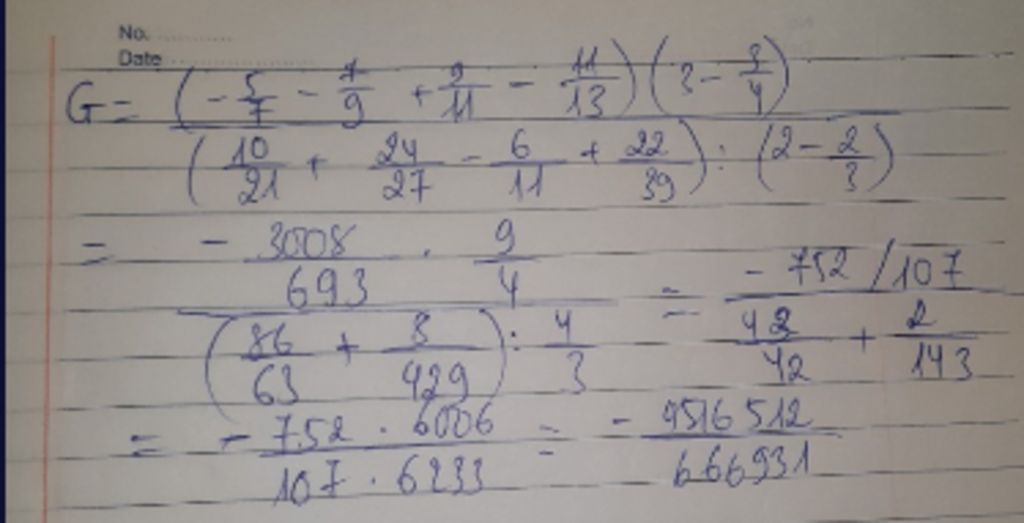 No.
Date
G = (-5/7 - 7/9 + 9/11 - 11/13)(3 - 3/4)
(10/21 + 24/27 - 6/11 + 22/39) : (2 - 2/3)
= - 3008/693 . 9/4
(86/63 + 8/429) : 4/3
= - 752/107
43/42 + 2/143
= - 752 . 6006 / 107 . 6233 = - 4516512/666931